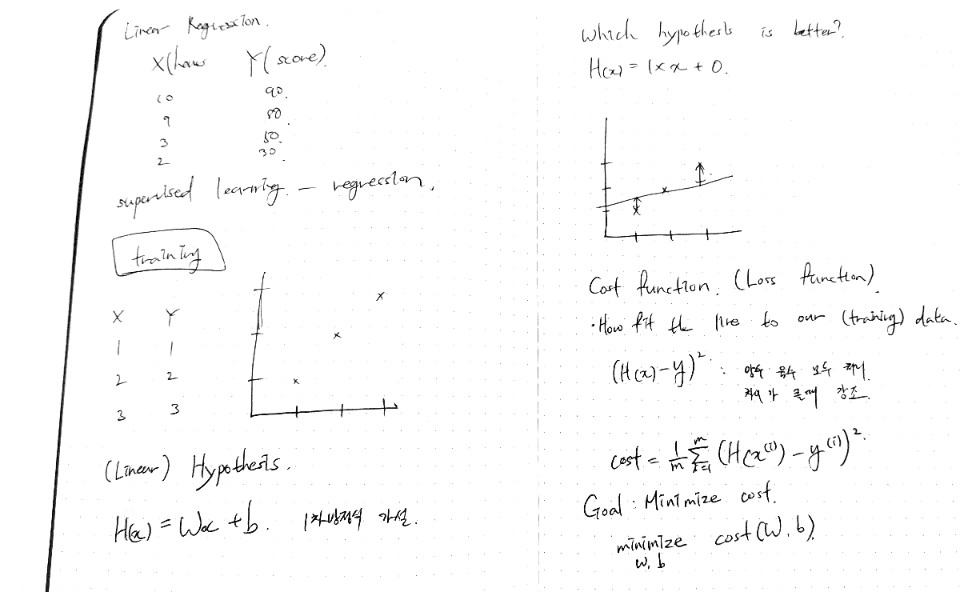 Linear Regression.
X(hours Y(score)
10 90.
9 80.
3 50.
2 30.
supervised learning — regression.
training
X Y
1 1
2 2
3 3
(Linear) Hypothesis.
H(x) = Wx + b. 1차방정식 가설.
Which hypothesis is better?
H(x) = 1×x + 0.
Cost function. (Loss function)
·How fit the line to our (training) data.
(H(x)-y)² : 양수 음수 모두 처리.
차이가 클때 강조.
cost = 1/m Σ_{i=1}^{m} (H(x^(i)) - y^(i))².
Goal : Minimize cost.
minimize cost(W, b)
W, b